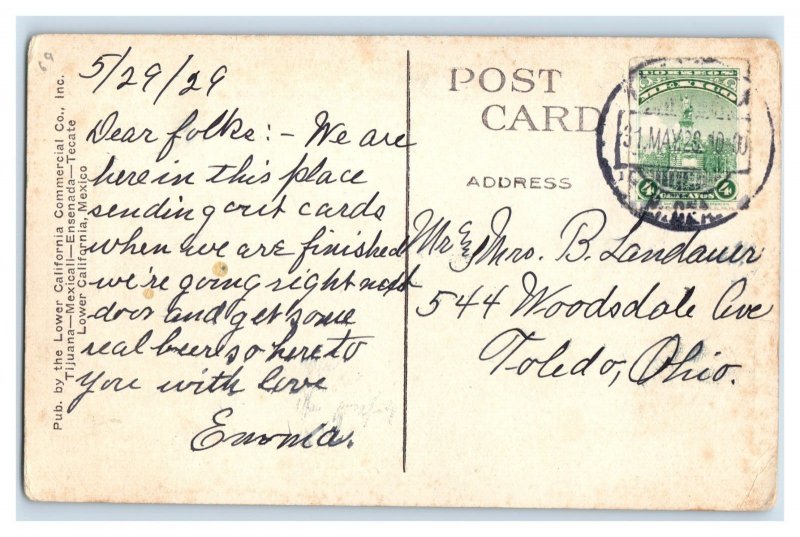 69
Pub. by the Lower California Commercial Co., Inc.
Tijuana—Mexicali—Ensenada—Tecate
Lower California, Mexico
5/29/29
Dear folks:- We are
here in this place
sending out cards
when we are finished
we're going right next
door and get some
real beer so here to
you with love
Emma.
POST
CARD
ADDRESS
CORREOS
MEXICO
31.MAY.28.10-00
4c CENTAVOS 4c
Mr & Mrs. B. Landauer
544 Woodsdale Ave
Toledo, Ohio.